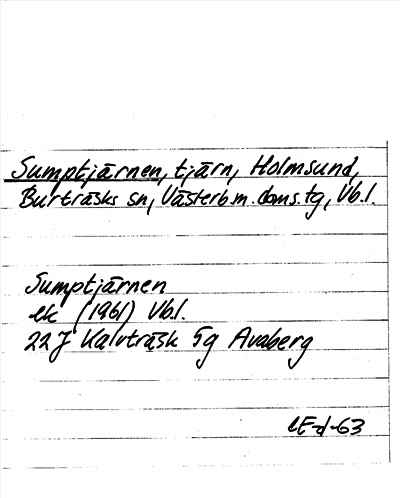 Sumptjärnen, tjärn, Holmsund,
Burträsks sn, Västerb.m. doms.tg, Vb.l.
Sumptjärnen
ek (1961) Vb.l.
22 J Kalvträsk 5g Avaberg
lE-d-63